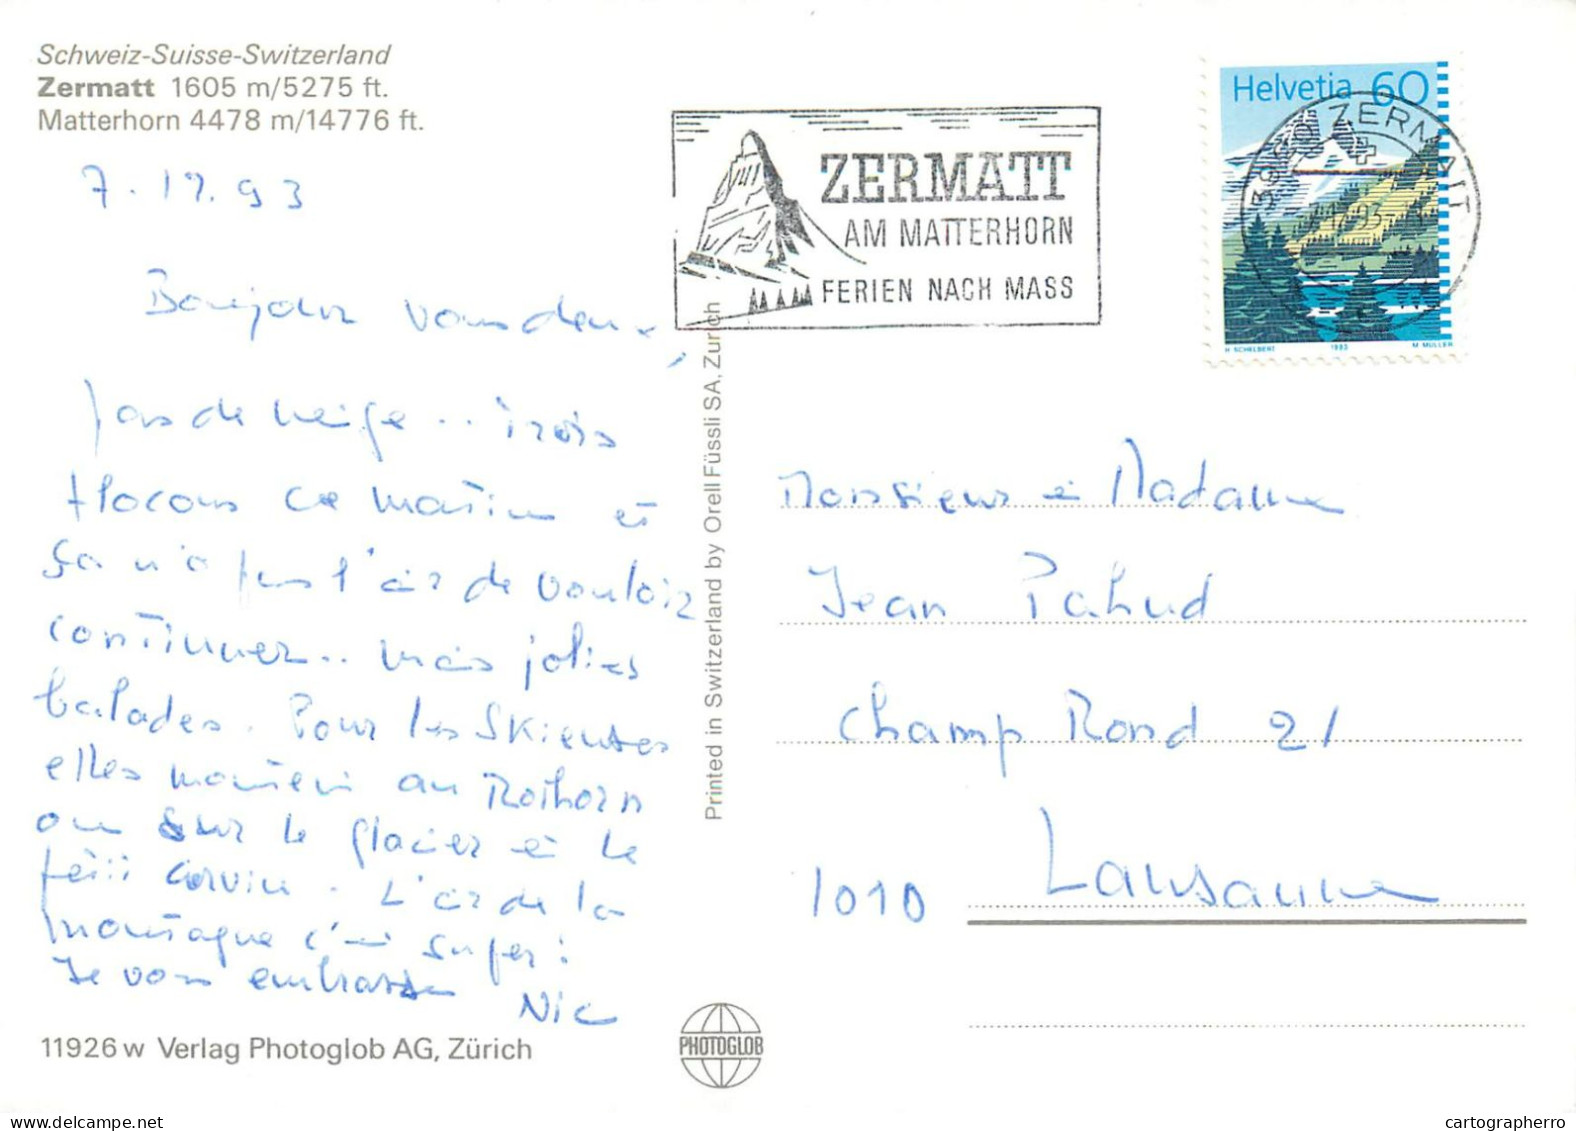 Schweiz-Suisse-Switzerland
Zermatt 1605 m/5275 ft.
Matterhorn 4478 m/14776 ft.
7.12.93
Bonjour vous deux,
pas de neige .. trois
flocons ce matin et
ça n'a pas l'air de vouloir
continuer .. mais jolies
balades. Pour les skieuses
elles montent au Rothorn
ou sur le glacier et le
Cervin. L'air de la
montagne c'est super!
Je vous embrasse Nic
11926 w Verlag Photoglob AG, Zürich
PHOTOGLOB
Printed in Switzerland by Orell Füssli SA, Zurich
ZERMATT
AM MATTERHORN
FERIEN NACH MASS
Helvetia 60
3920 ZERMATT
H SCHELBERT 1993 M MÜLLER
Monsieur et Madame
Jean Pahud
Champ Rond 21
1010 Lausanne
delcampe.net
cartographerro